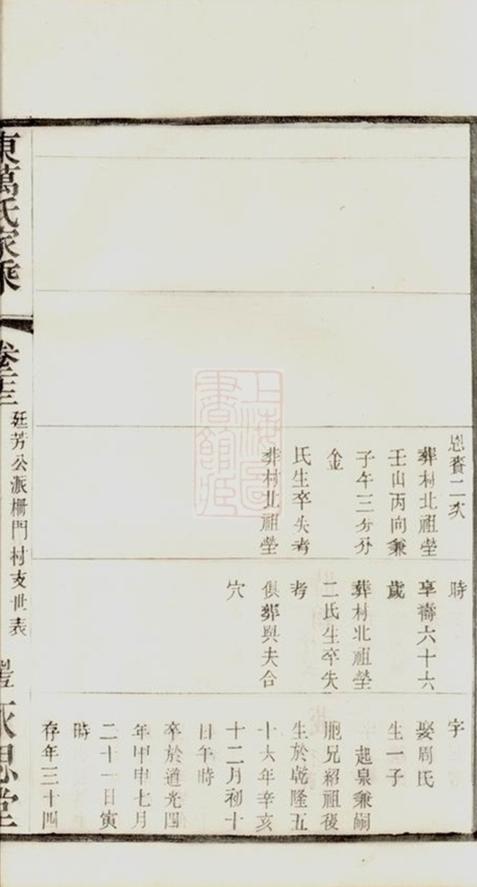 恩賚二次
葬村北祖塋
壬山丙向兼
子午三分分
金
氏生卒失考
葬村北祖塋
時
享壽六十六
歲
葬村北祖塋
二氏生卒失
考
俱葬與夫合
穴
字
娶周氏
生一子
起泉兼嗣
胞兄紹祖後
生於乾隆五
十六年辛亥
十二月初十
日午時
卒於道光四
年甲申七月
二十一日寅
時
存年三十四
東萬氏家乘
廷芳公派柵門村支世表
永思堂
上海圖書館藏